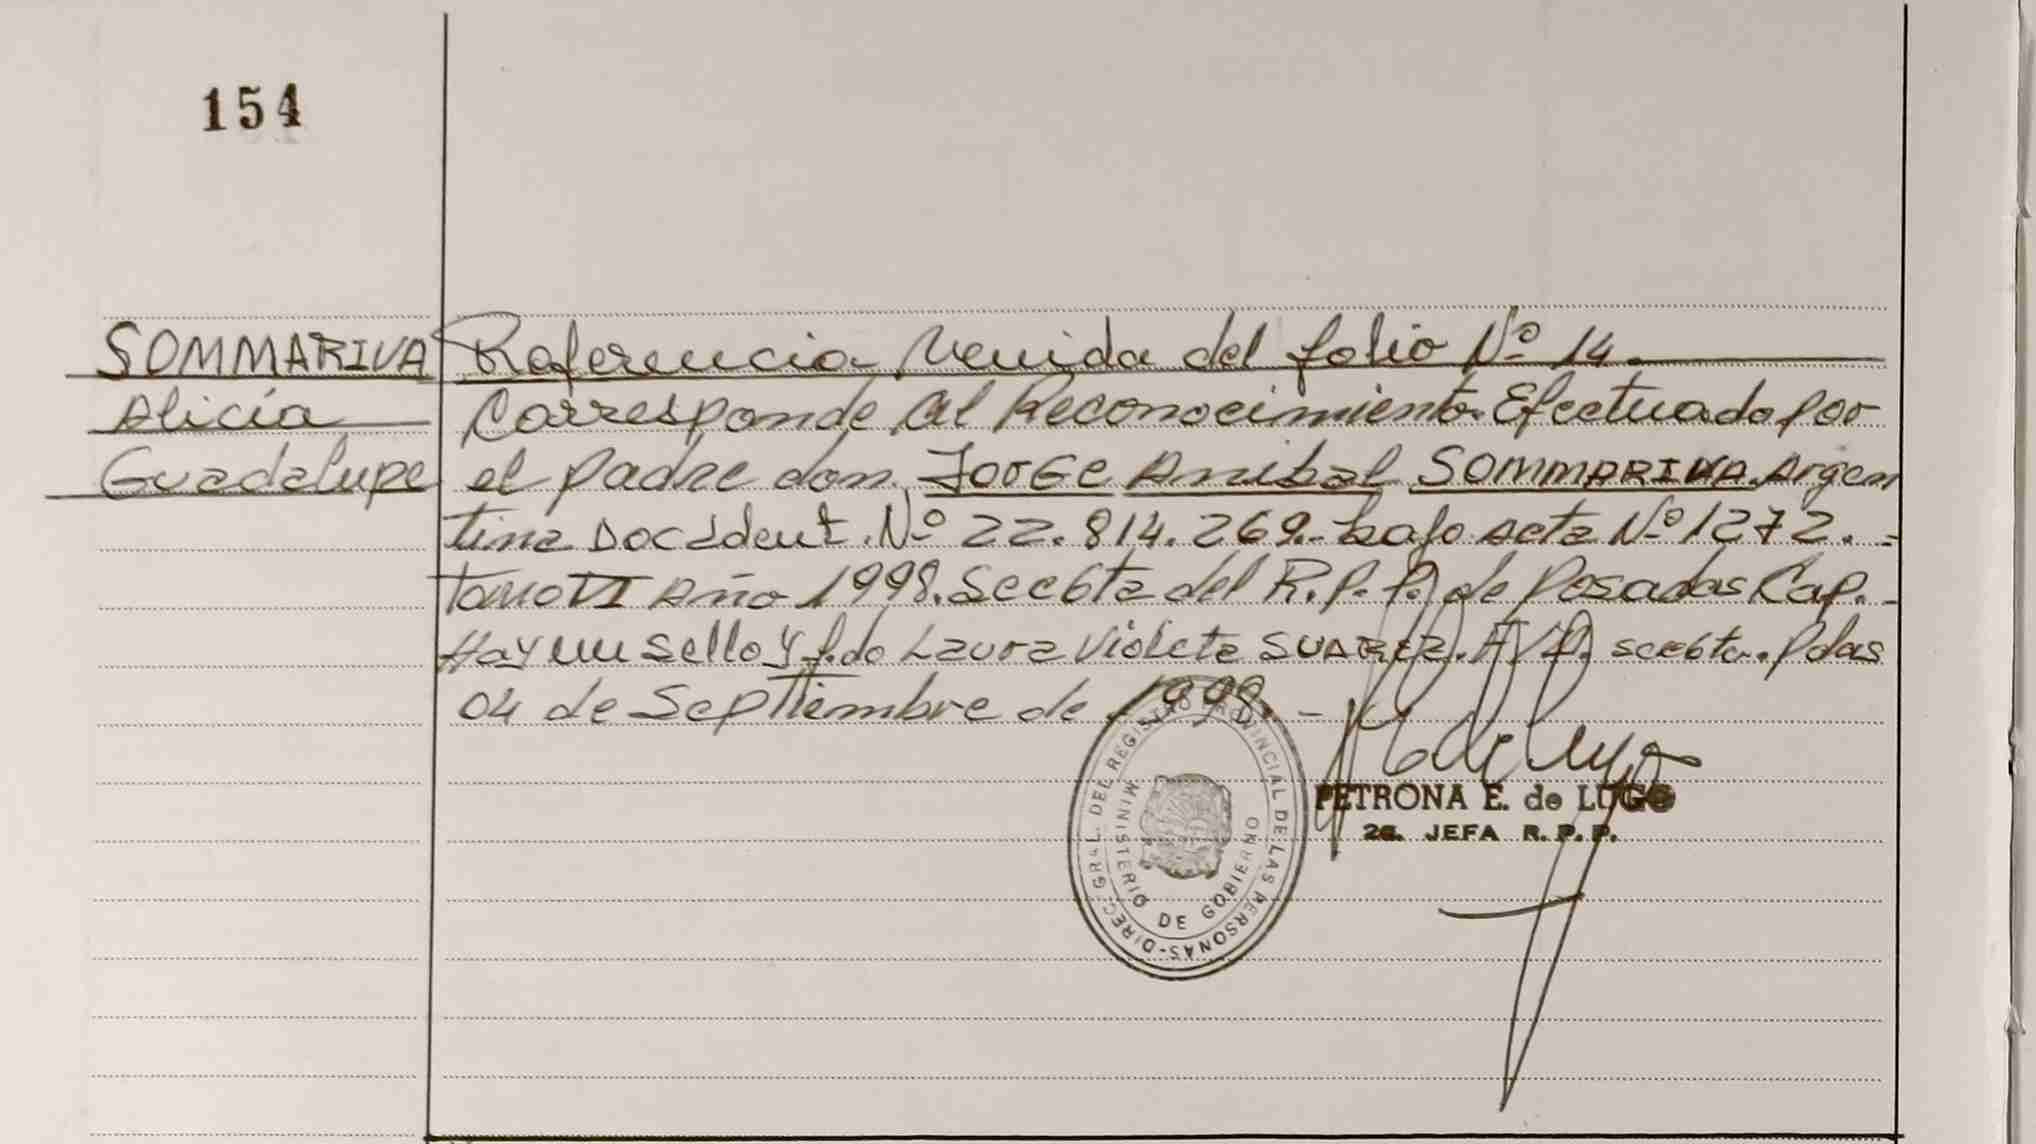 154
SOMMARIVA
Alicia
Guadalupe
Raferencia Venida del folio Nº 14.
Corresponde al Reconocimiento Efectuado por
el padre don Jorge Anibal SOMMARIVA Argen
tino Doc Ident. Nº 22.814.269.- bajo acta Nº 1272.-
tomo VI Año 1998. Secc 6ta del R.P.P. de Posadas Cap.-
Hay un sello y f.do Laura Violeta SUAREZ. secc 6ta. Pdas
04 de Septiembre de 1998.-
DIREC. GRAL. DEL REGISTRO PROVINCIAL DE LAS PERSONAS-
MINISTERIO DE GOBIERNO
PETRONA E. de LUGO
2a. JEFA R.P.P.